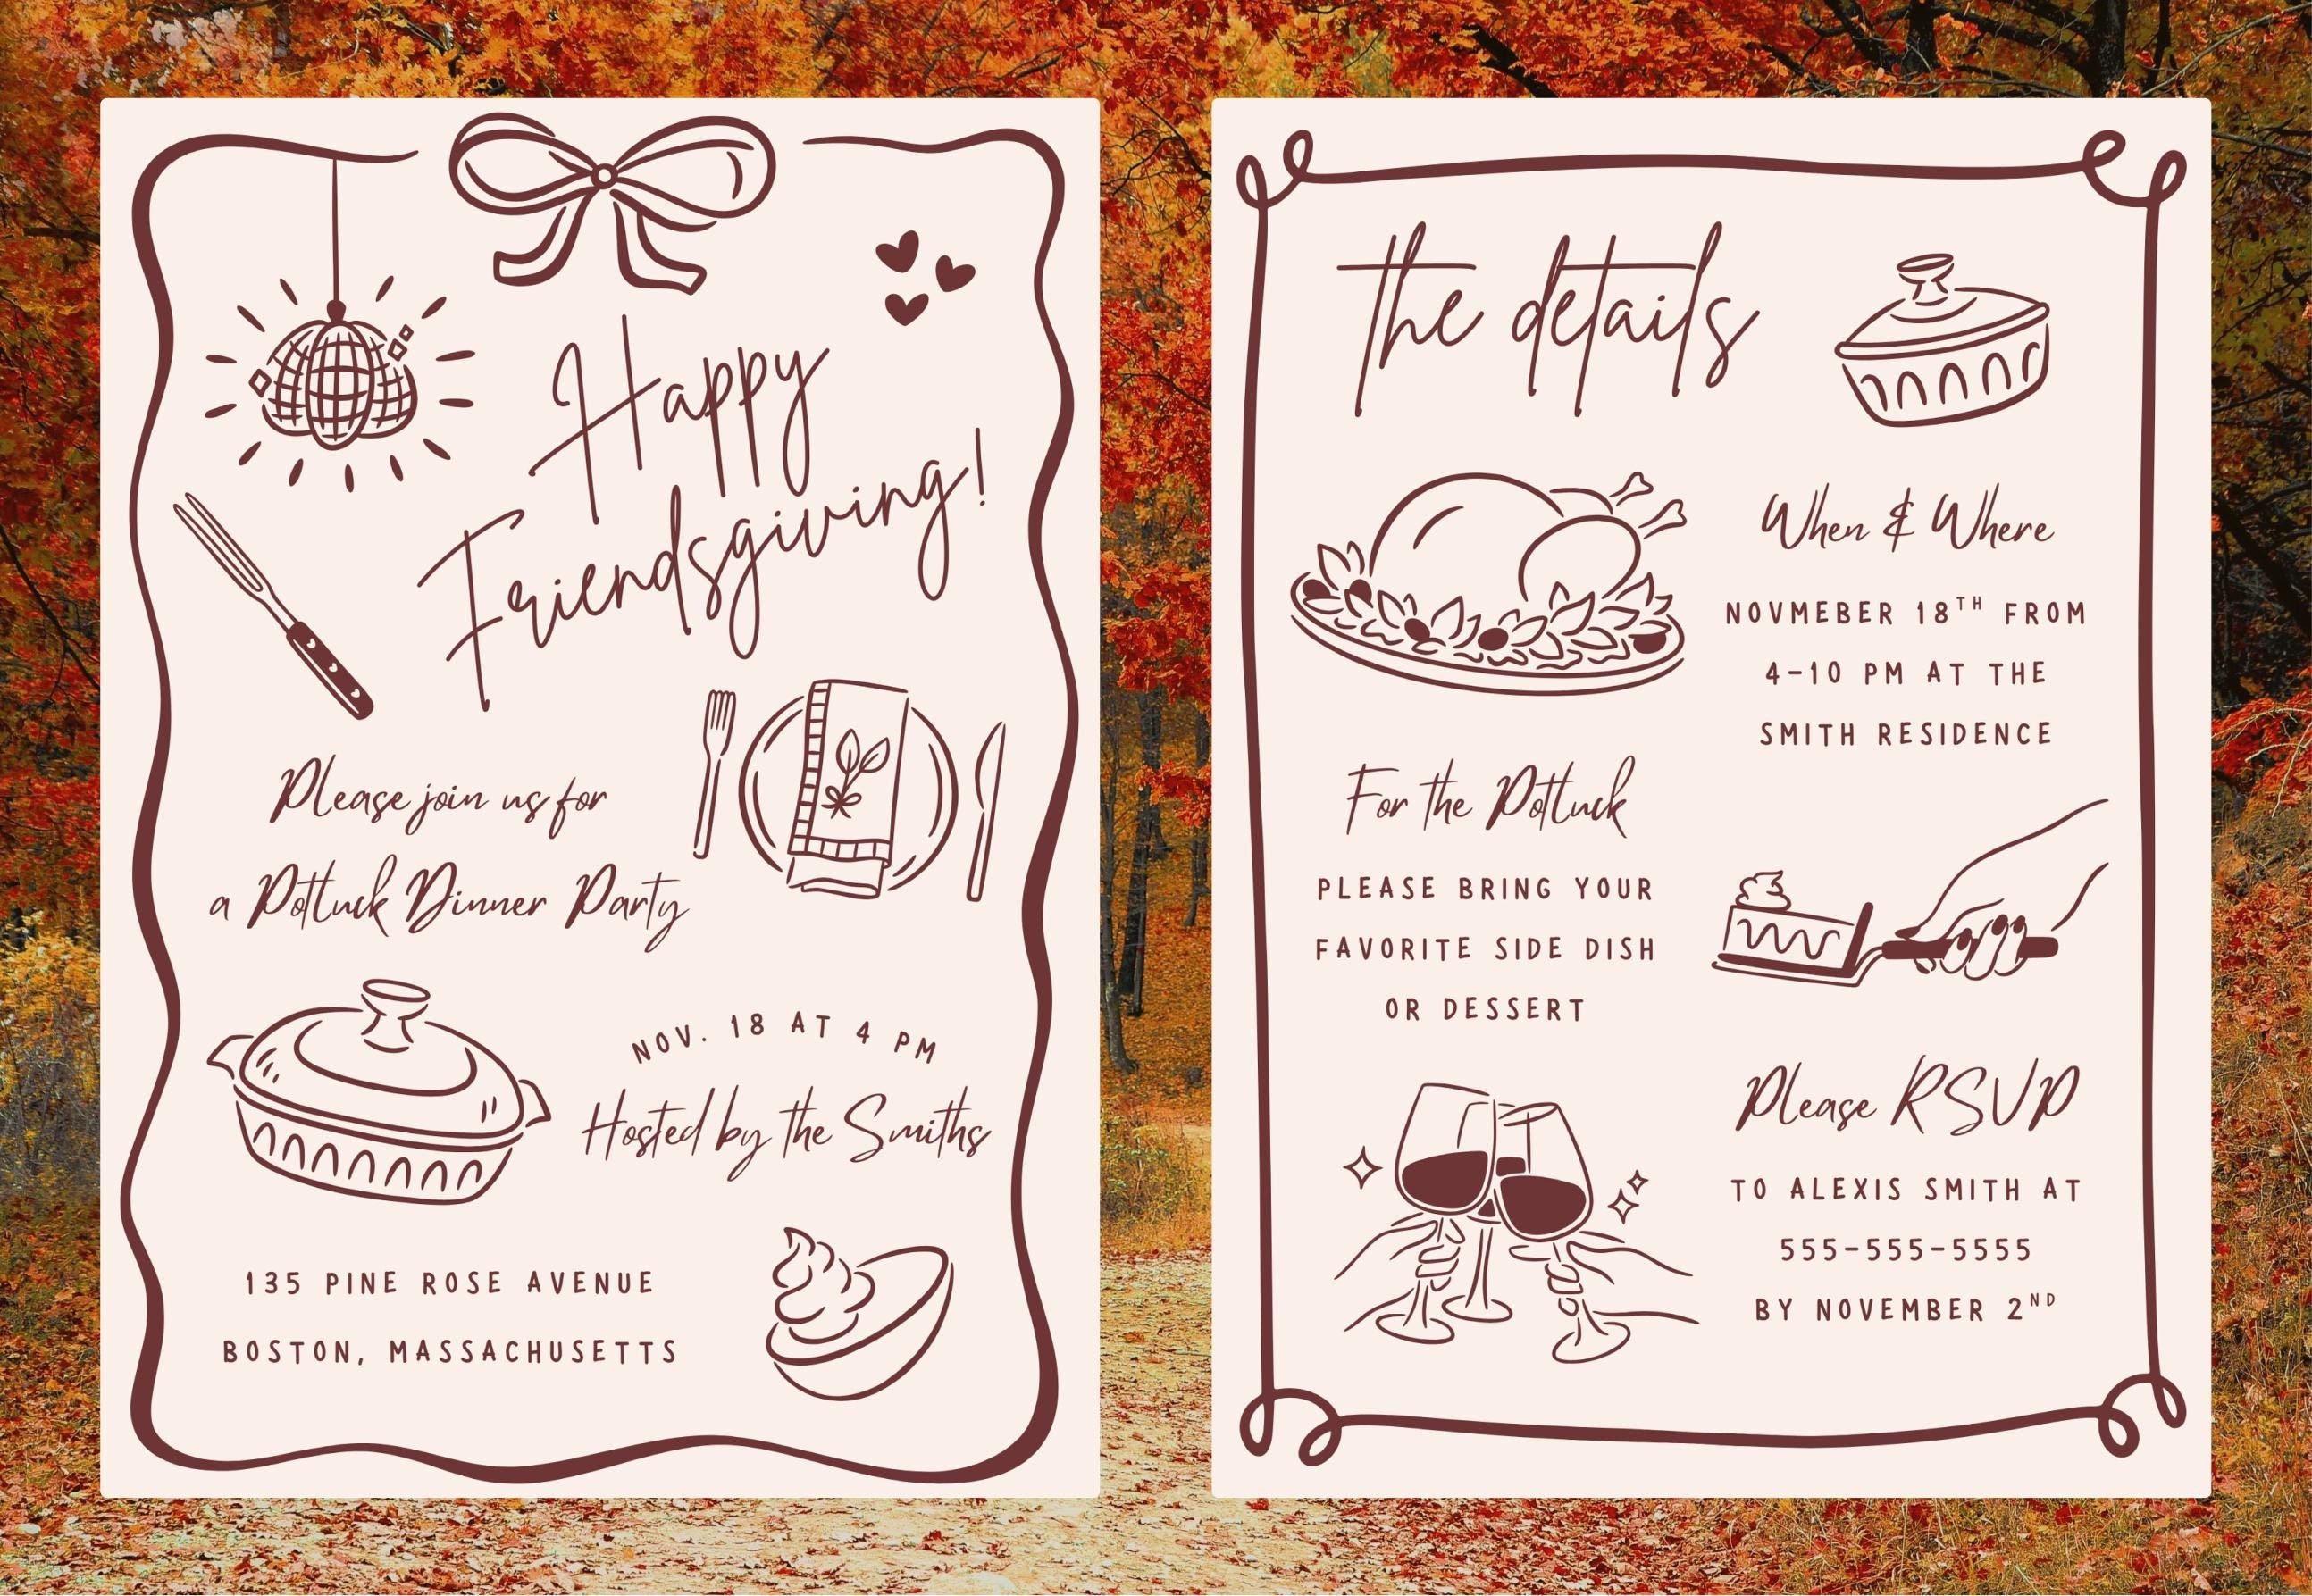 Happy
Friendsgiving!
Please join us for
a Potluck Dinner Party
NOV. 18 AT 4 PM
Hosted by the Smiths
135 PINE ROSE AVENUE
BOSTON, MASSACHUSETTS
the details
When & Where
NOVMEBER 18TH FROM
4-10 PM AT THE
SMITH RESIDENCE
For the Potluck
PLEASE BRING YOUR
FAVORITE SIDE DISH
OR DESSERT
Please RSVP
TO ALEXIS SMITH AT
555-555-5555
BY NOVEMBER 2ND